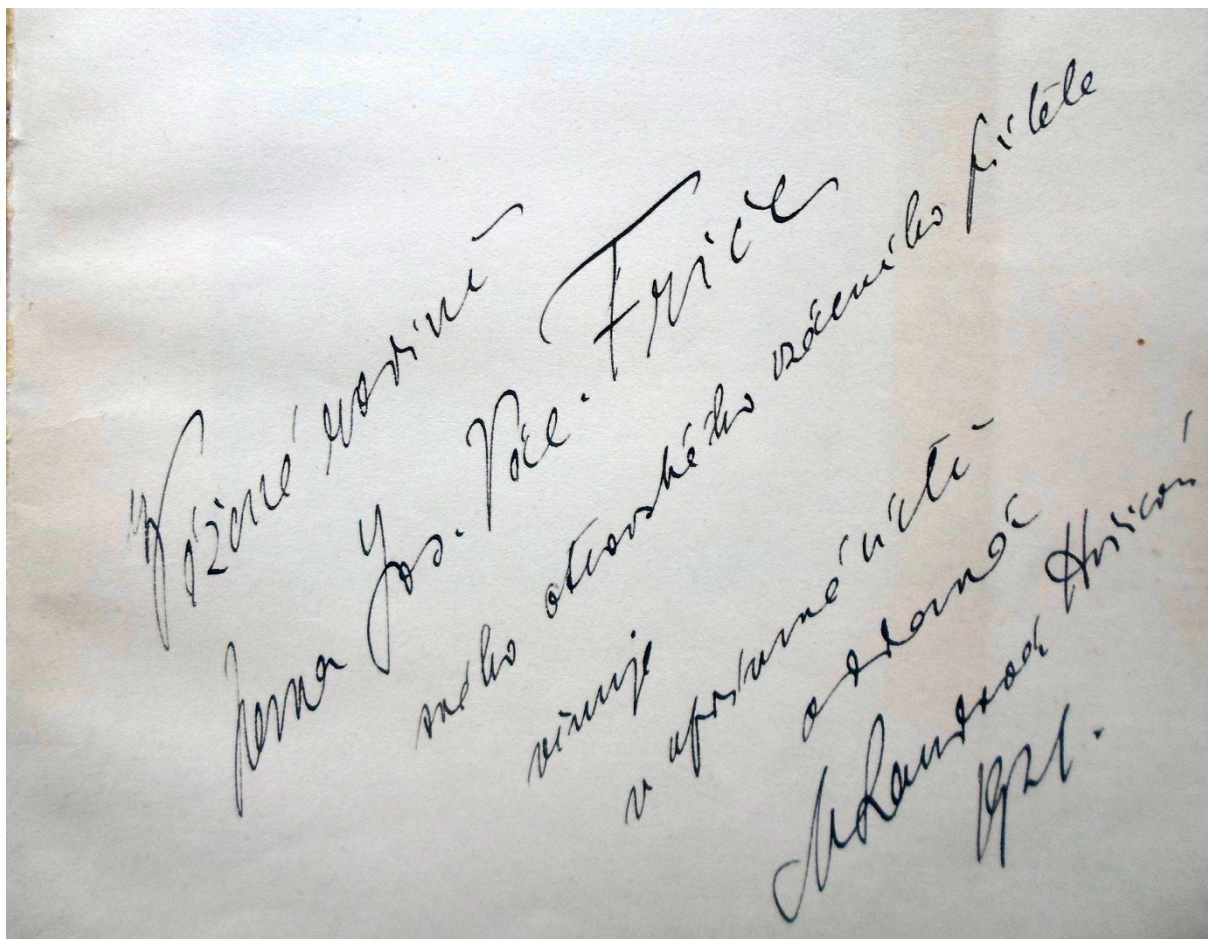 Vážené rodině
pana Jos. Václ. Friče
svého otcovského vzácného přítele
věnuje
v upřímné úctě
a oddané
1921.